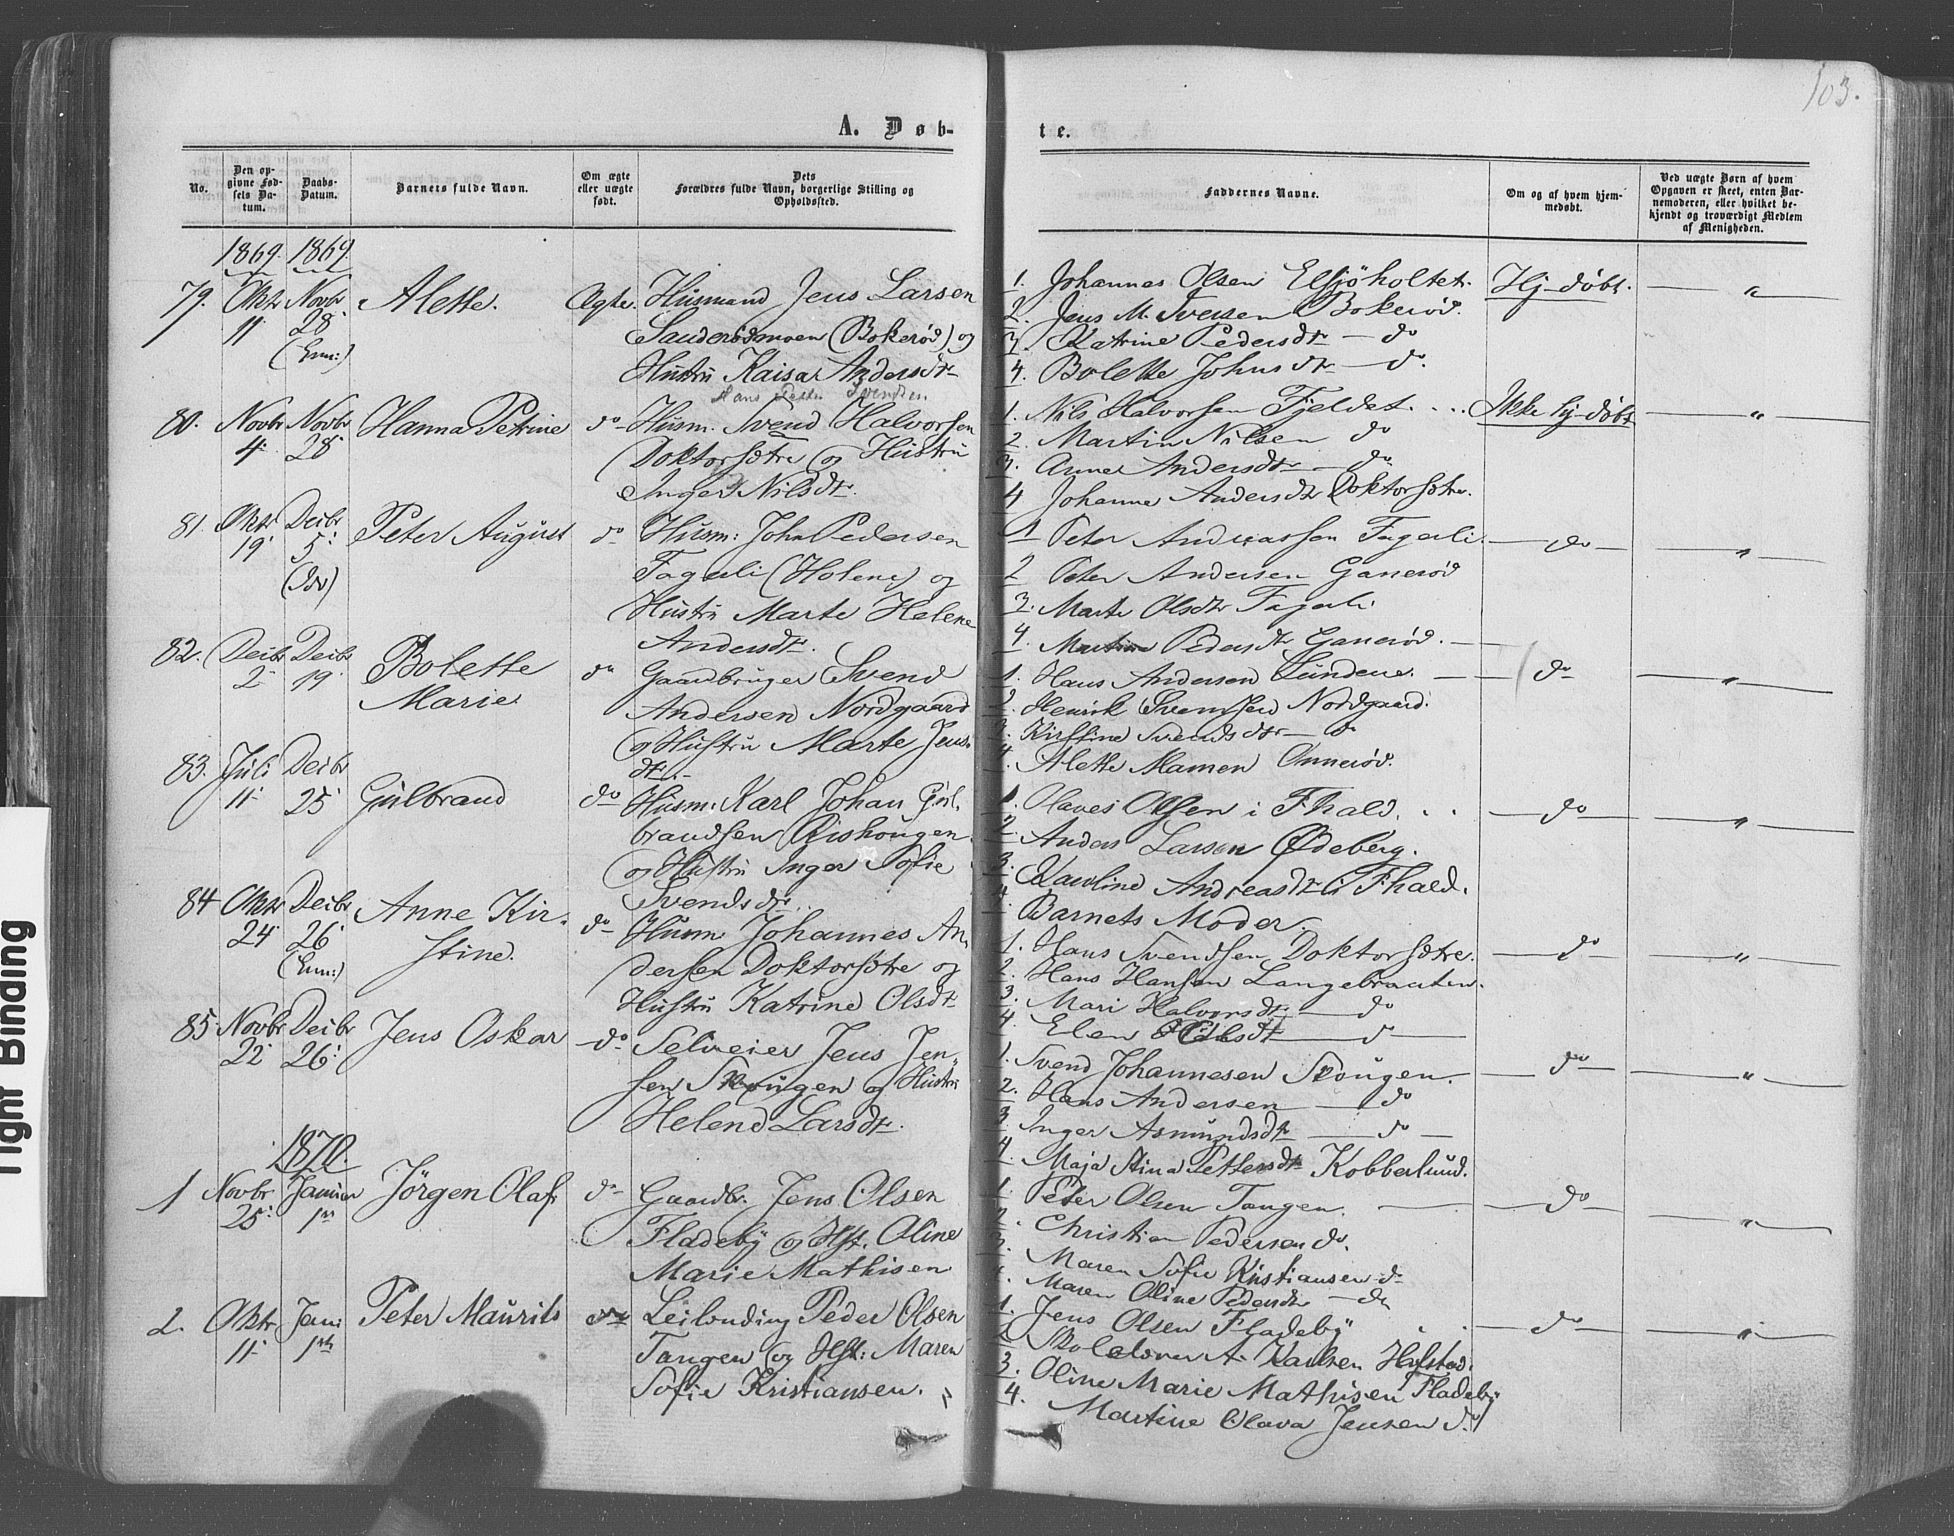 103.
A. Døb-
te.
No.
Den op-
givne Fød-
sels Da-
tum.
Daabs-
Datum.
Barnets fulde Navn.
Om ægte
eller uægte
født.
Dets
Forældres fulde Navn, borgerlige Stilling og
Opholdssted.
Faddernes Navne.
Om og af hvem hjem-
medøbt.
Ved uægte Børn af hvem
Opgaven er skeet, enten Bar-
nemoderen, eller hvilket be-
kjendt og troværdigt Medlem
af Menigheden.
1869. 1869.
79. Oktr 11. Novbr 28. (Enn:) Alette. Ægte.
Husmand Jens Larsen
Sandersdmoen (Bokerød) og
Hustru Kaisa Andersdtr
1. Johannes Olsen Elsjøholtet. Hj-døbt. — „ —
2. Jens M. Iversen Bokerød.
3. Katrine Pedersdtr — do
4. Bolette Johnsdtr — do.
Hans Petter Svendsen
80. Novbr 4. Novbr 28. Hanna Petrine do
Husm: Svend Halvorsen
Doktorsætre og Hustru
Inger Nilsdtr.
1. Nils Halvorsen Fjeldet. Ikke hj-døbt — „ —
2. Martin Nilsen do
3. Anne Andersdtr — do.
4 Johanne Andersdtr Doktorsætre.
81. Oktr 19. Decbr 5. Peter August do
Husm: John Pedersen
Fagerli (Holene) og
Hustru Marte Helene
Andersdtr.
1 Peter Andreassen Fagerli. — do — „ —
2 Peter Andersen Ganerød
3. Marte Olsdtr Fagerli
4. Martine Pedersdtr Ganerød. —
82. Decbr 2. Decbr 19. Bolette
Marie do
Gaardbruger Svend
Andersen Nordgaard
og Hustru Marte Jens
dtr.
1. Hans Andersen Lundene. — do — „ —
2. Henrik Svensen Nordgaard.
3. Kirstine Svendsdtr — do
4. Alette Mamen Onnerød.
83. Juli 11. Decbr 25. Gulbrand do
Husm: Karl Johan Gul-
brandsen Riskougen
og Hustru Inger Sofie
Svendsdtr.
1. Olaves Olsen i Fhald. — do — „ —
2. Anders Larsen Ødeberg.
3. Karoline Andreasdtr i Fhald.
4. Barnets Moder.
84 Oktr 24. Decbr 26. (Enn:) Anne Kir-
stine. do
Husm Johannes An
dersen Doktorsætre og
Hustru Katrine Olsdtr
1. Hans Svendsen Doktorsætre. — do — „ —
2. Hans Hansen Langebraaten.
3. Mari Halvorsdtr — do
4. Elen — do —
85 Novbr 22. Decbr 26. Jens Oskar do
Selveier Jens Jen-
sen Skougen og Hustru
Helene Larsdtr.
1. Svend Johannesen Skougen. — do — „ —
2. Hans Andersen — do
3. Inger Asmundsdtr — do —
4. Maja Stina Pettersdtr Kobberlund.
1870.
1 Novbr 25. Januar 1ste Jörgen Olaf do
Gaardbr. Jens Olsen
Fladeby og Hst. Oline
Marie Mathisen
1. Peter Olsen Tangen. — do — „ —
2. Christian Pedersen do.
3. Maren Sofie Kristiansen do
4. Maren Oline Pedersdtr — do
2. Oktr 11. Jani 1ste Peter Maurits do
Leilending Peder Olsen
Tangen og Hst: Maren
Sofie Kristiansen.
1. Jens Olsen Fladeby — do — „ —
2 Skolelærer A. Karlsen Hafstad.
3. Oline Marie Mathisen Fladeby
4. Martine Olava Jensen do
Tight Binding